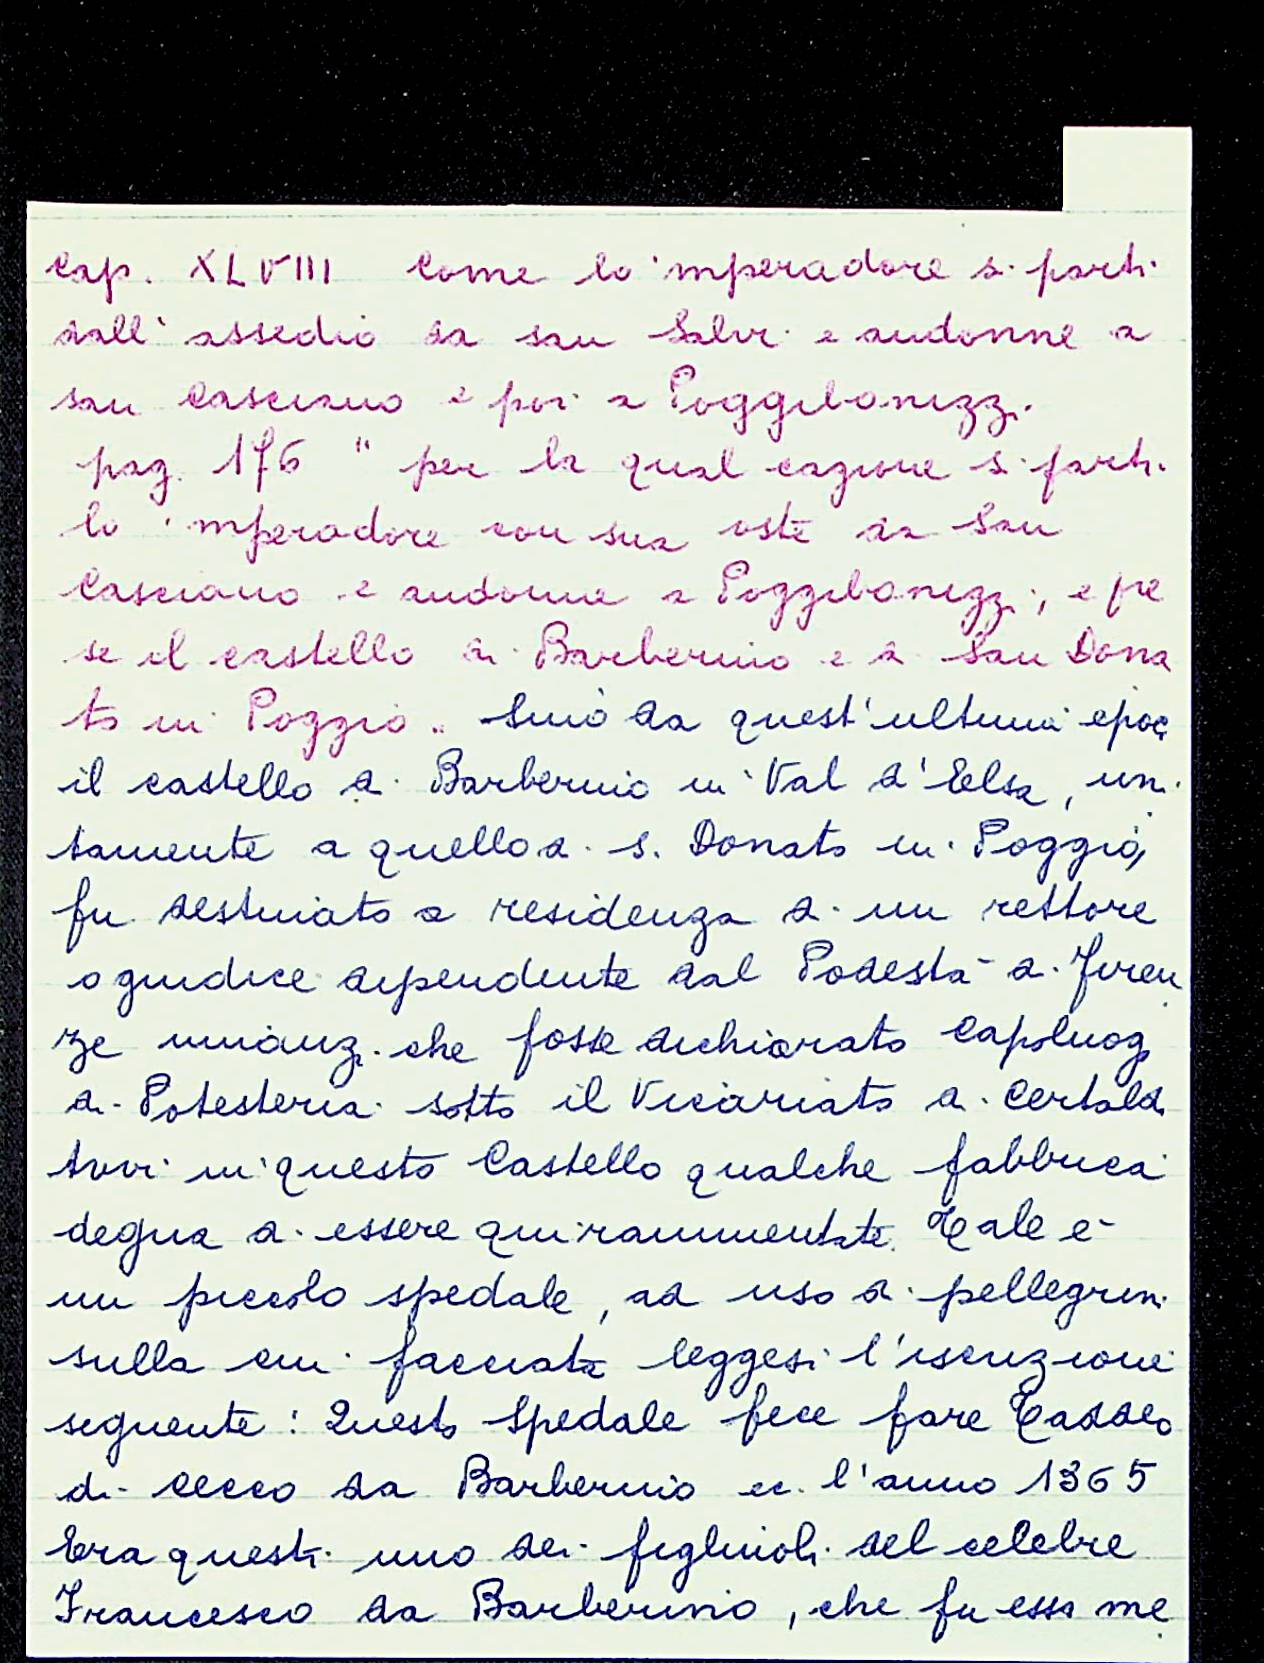 Cap. XLVIII Come lo 'mperadore si parti
dall'assedio da san Salvi e andonne a
san Casciano e poi a Poggibonizzi.
pag. 176 " per la qual cagione si parti
lo 'mperadore con sua oste da San
Casciano e andonne a Poggibonizzi, e pre
se il castello di Barberino e di San Dona
to in Poggio.. Sino da quest'ultima epoc
il castello di Barberino in Val d'Elsa, uni
tamente a quello di S. Donato in Poggio,
fu destinato a residenza di un rettore
o giudice dipendente dal Podestà di Firen
ze innanzi che fosse dichiarato Capoluog
di Potesteria sotto il Vicariato di Certald
Avvi in questo Castello qualche fabbrica
degna di essere qui rammentate. Tale è
un piccolo spedale, ad uso di pellegrini
sulla cui facciata leggesi l'iscrizione
seguente: Questo Spedale fece fare Taddeo
di Cecco da Barberino ec. l'anno 1365
Era questi uno dei figliuoli del celebre
Francesco da Barberino, che fu esso me